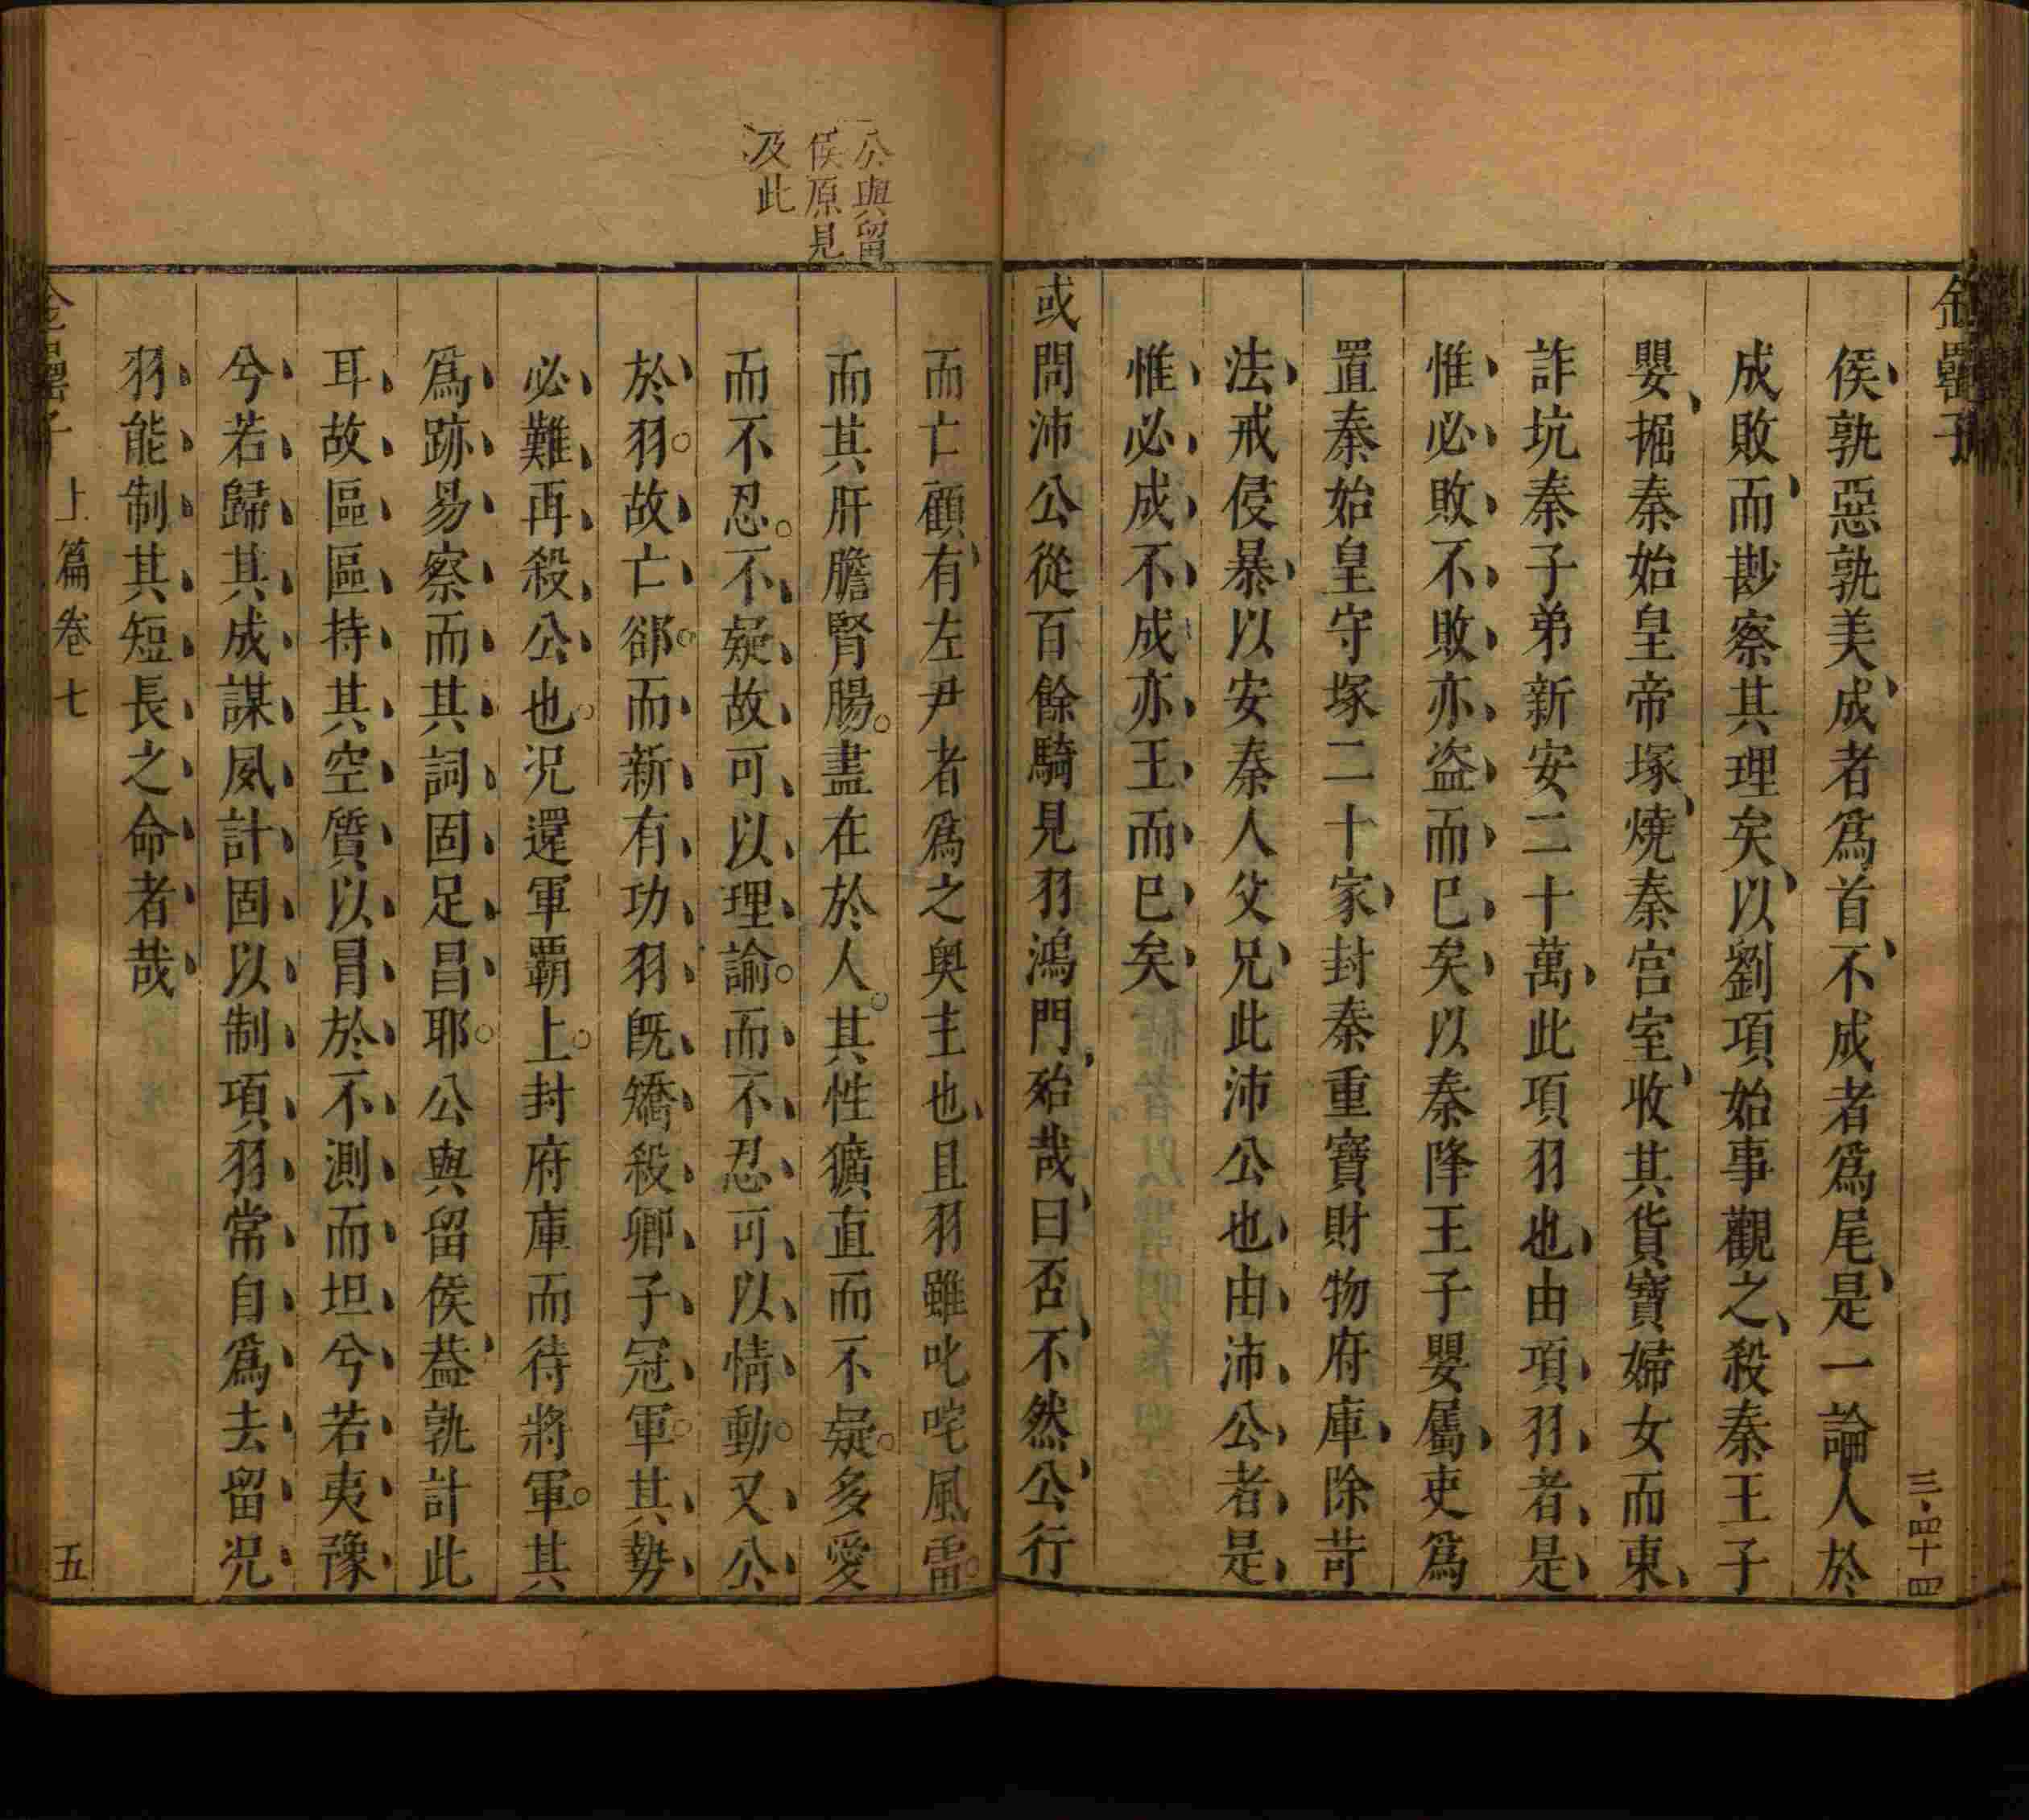 金罍子
三・四十四
侯孰惡孰美成者爲首不成者爲尾是一論人於
成敗而尠察其理矣以劉項始事觀之殺秦王子
嬰掘秦始皇帝塚燒秦宮室收其貨寶婦女而東
詐坑秦子弟新安二十萬此項羽也由項羽者是
惟必敗不敗亦盜而巳矣以秦降王子嬰屬吏爲
置秦始皇守塚二十家封秦重寶財物府庫除苛
法戒侵暴以安秦人父兄此沛公也由沛公者是
惟必成不成亦王而巳矣
或問沛公從百餘騎見羽鴻門殆哉曰否不然公行
公與留
侯原見
及此
而亡顧有左尹者爲之奧主也且羽雖叱咤風雷
而其肝膽腎腸盡在於人其性獷直而不疑多愛
而不忍不疑故可以理諭而不忍可以情動又公
於羽故亡郤而新有功羽旣矯殺卿子冠軍其勢
必難再殺公也况還軍覇上封府庫而待將軍其
爲跡易察而其詞固足昌耶公與留侯葢孰計此
耳故區區持其空質以冐於不測而坦兮若夷豫
兮若歸其成謀風計固以制項羽常自爲去留况
羽能制其短長之命者哉
金罍子
上篇卷七
五